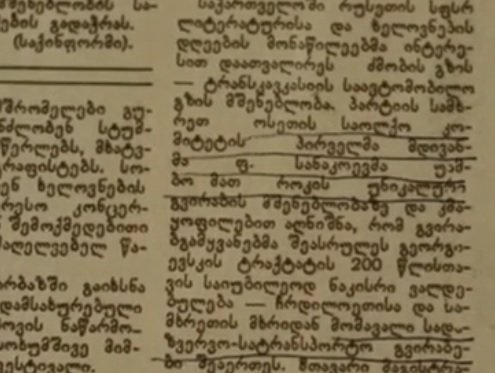 შენებლობის სა-
ების გადაჭრას.
(საქინფორმი).
შრომელები გუ-
ნძლობენ სტუმ-
წერლებს, მხატვ-
რაფისტებს. სო-
ენ ხელოვნების
რესო კონცერ-
შემოქმედებითი
აღელვებელ წა-
არბაზში გაიხსნა
დამსახურებული
ოვის ნაწარმო-
ოხუმშივე მიმ-
ესტივალი.
საქართველოში რუსეთის სფსრ
ლიტერატურისა და ხელოვნების
დღეების მონაწილეებმა ინტერე-
სით დაათვალიერეს ძმობის გზის
— ტრანსკავკასიის საავტომობილო
გზის მშენებლობა. პარტიის სამხ-
რეთ ოსეთის საოლქო კო-
მიტეტის პირველმა მდივან-
მა ფ. სანაკოევმა უამ-
ბო მათ როკის უნიკალური
გვირაბის მშენებლობაზე და კმა-
ყოფილებით აღნიშნა, რომ გვირა-
ბგამყვანებმა შეასრულეს გეორგი-
ევსკის ტრაქტატის 200 წლისთა-
ვის საიუბილეოდ ნაკისრი ვალდე-
ბულება — ჩრდილოეთისა და სა-
მხრეთის მხრიდან მომავალი სად-
ზვერვო-სატრანსპორტო გვირაბე-
ბი შეაერთეს. მთავარი მაგისტრა-